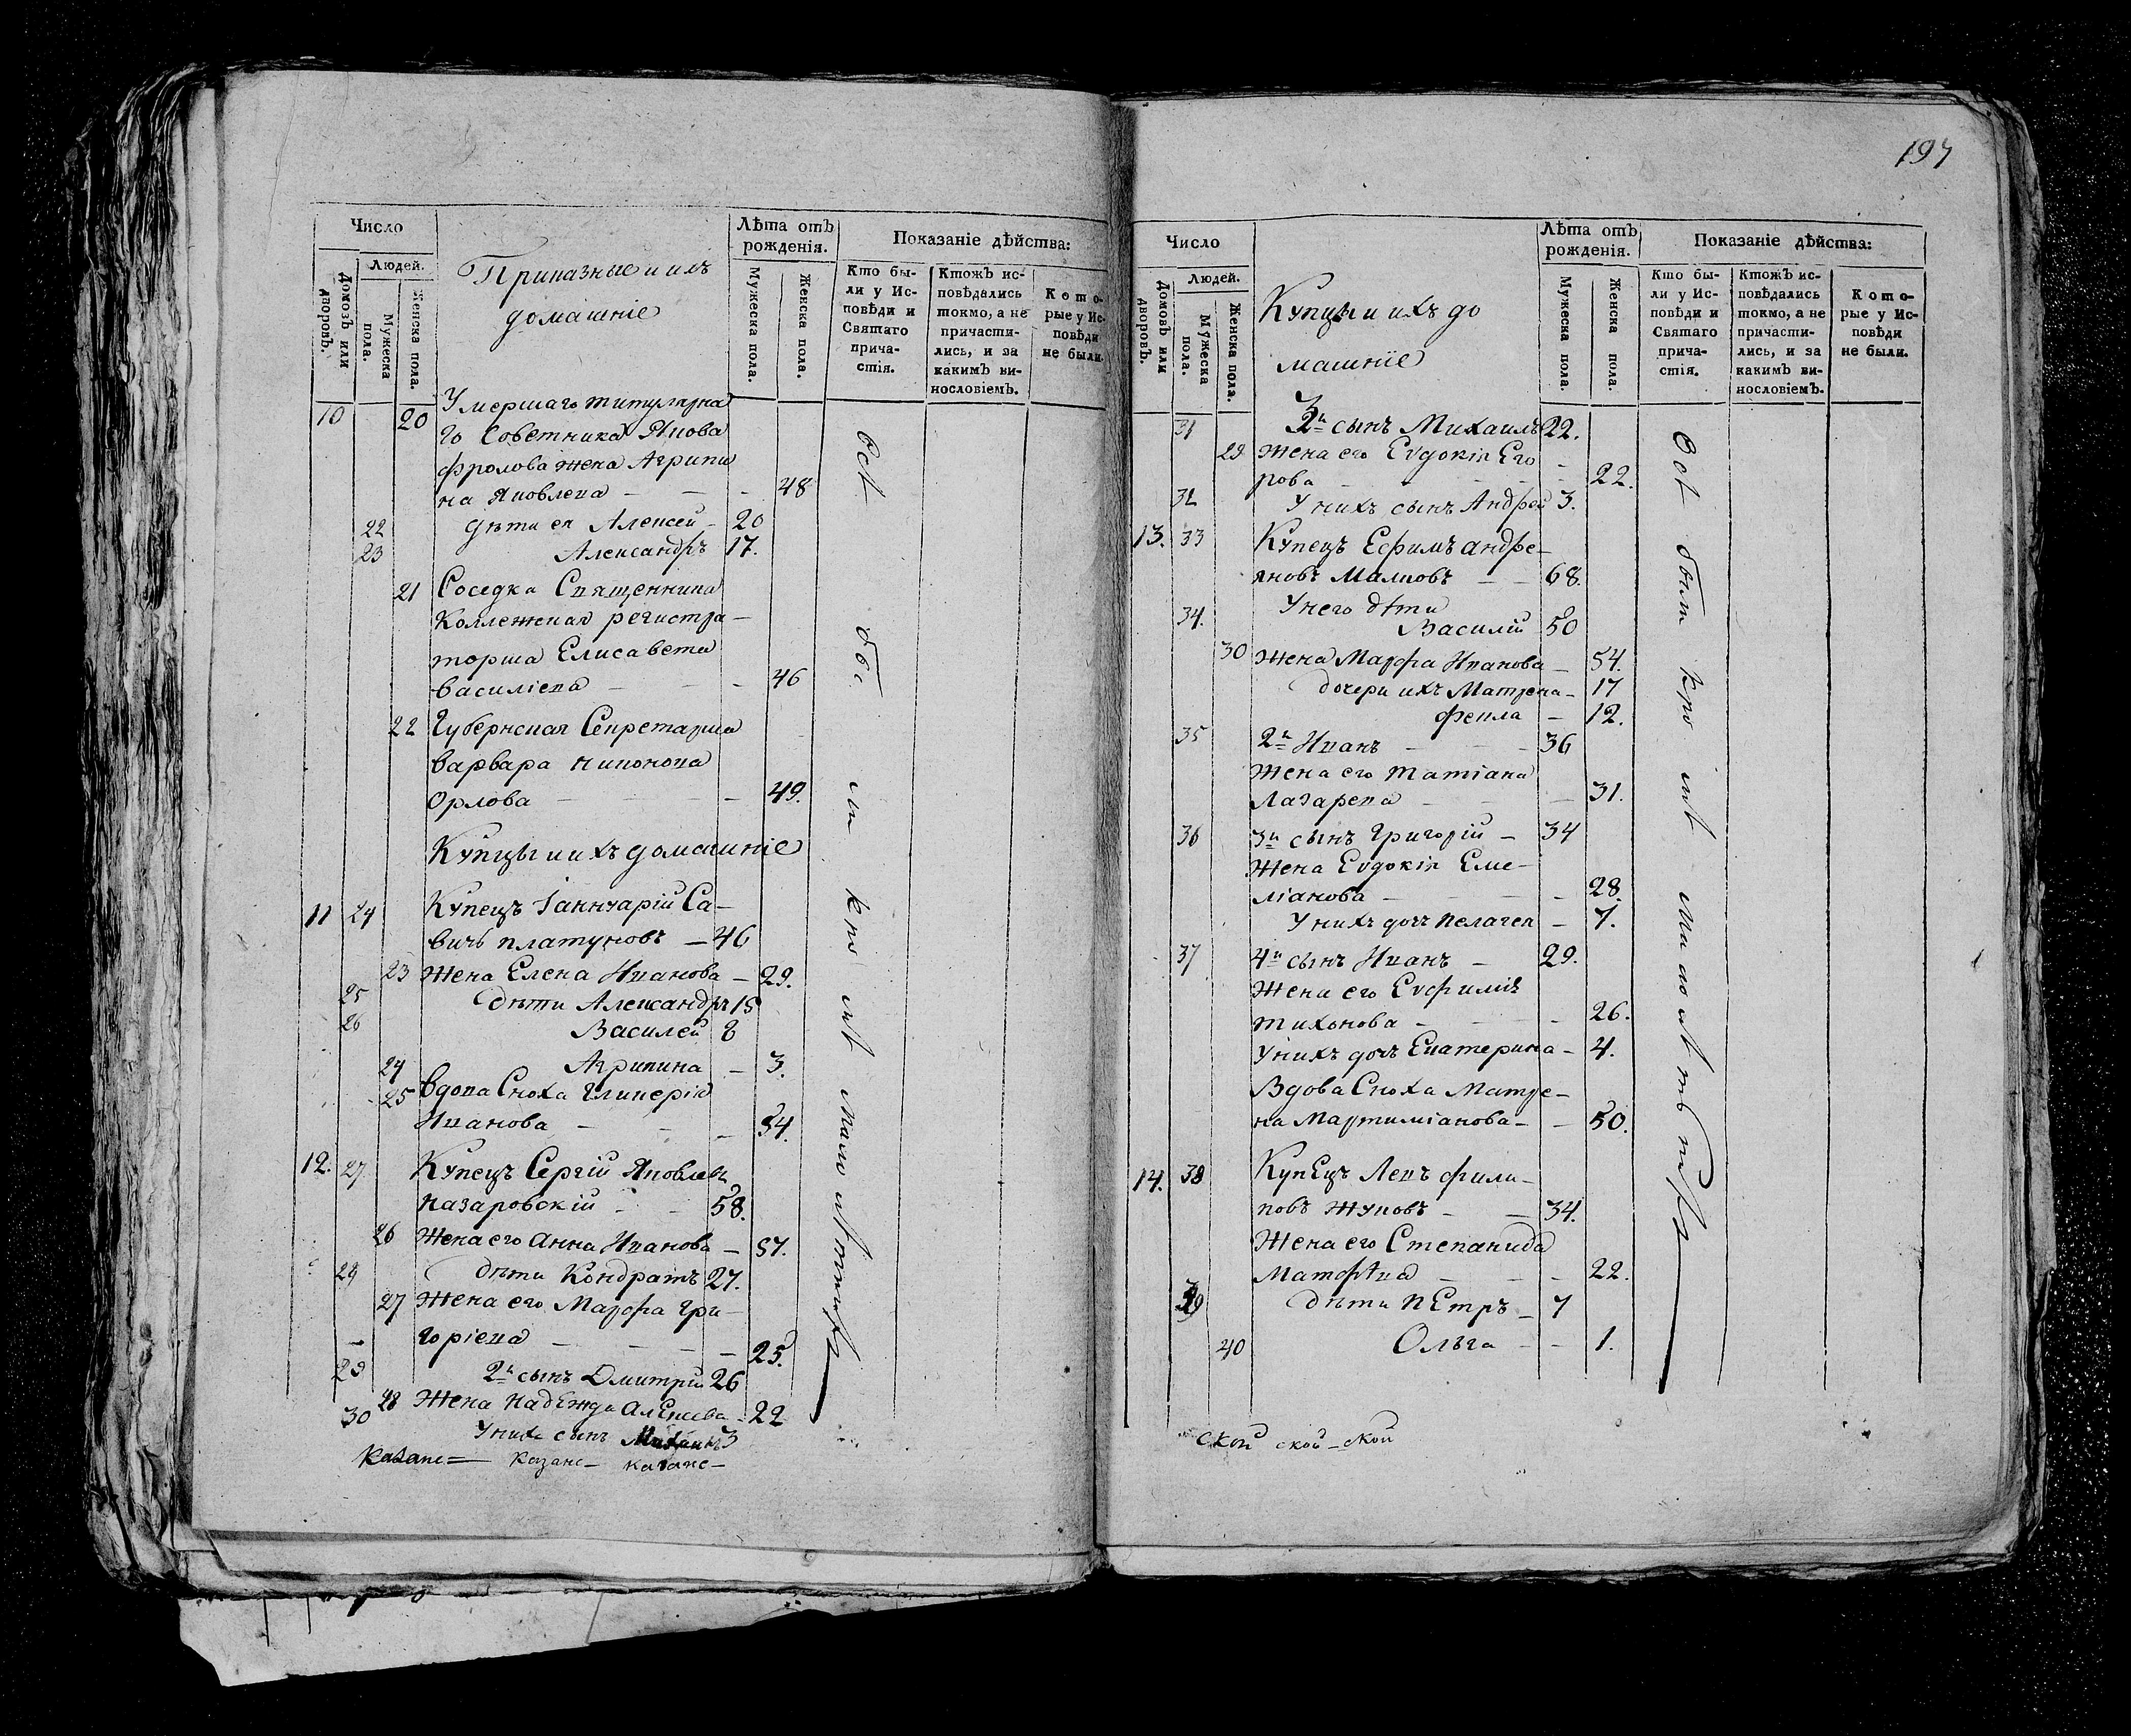 Число
Людей.
Домовъ или дворовъ.
Мужеска пола.
Женска пола.
Приказные и ихъ
домашніе
Лѣта отъ рожденія.
Мужеска пола.
Женска пола.
Показаніе дѣйства:
Кто бы-
ли у Ис-
повѣди и
Святаго
прича-
стія.
Ктожъ ис-
повѣдались
токмо, а не
причасти-
лись, и за
какимъ ви-
нословіемъ.
Кото-
рые у Ис-
повѣди
не были.
10 20 Умершаго титулярна
го Советника Якова
Фролова жена Агрипи
на Яковлева — — - 48
22 дѣти ея Алексей - 20
23 Александръ 17.
21 Соседка Священника
Коллежская регистра-
торша Елисавета
василіева — — - 46
22 Губернская Секретарша
варвара никонова
Орлова — — — 49.
Купцы и ихъ домашніе
11 24 Купецъ Іаннуарій Са-
вичь платуновъ — 46
23 Жена Елена Иванова — 29.
25 дѣти Александръ 15
26 Василей 8
24 Агрипина — 3.
25 вдова Сноха Гликерія
Иванова — - — 54.
12. 27 Купецъ Сергій Яковлевъ
назаровскій - - 58.
26 Жена его Анна Иванова — 57.
28 дѣти Кондратъ 27.
27 Жена его Марфа Гри-
горіева — — - — 25.
29 2й сынъ Дмитрій 26
28 Жена надежда алексева - 22
30 У нихъ сынъ Михаилъ 3
казанс= казанс- казанс-
197
Число
Людей.
Домовъ или дворовъ.
Мужеска пола.
Женска пола.
Купцы и ихъ до
машніе
Лѣта отъ рожденія.
Мужеска пола.
Женска пола.
Показаніе дѣйства:
Кто бы-
ли у Ис-
повѣди и
Святаго
прича-
стія.
Ктожъ ис-
повѣдались
токмо, а не
причасти-
лись, и за
какимъ ви-
нословіемъ.
Кото-
рые у Ис-
повѣди
не были.
31 3й сынъ Михаилъ 22.
29 Жена его Евдокія Его -
рова - - - - 22.
32 У нихъ сынъ Андрей 3.
13. 33 Купецъ Ефимъ андре-
яновъ Малковъ — — 68.
У него дѣти
34. Василій 50
30 Жена Марфа Иванова — 54.
дочери ихъ Матрена - 17
фекла — 12.
35 2й Иванъ — - 36
Жена его татіана
Лазарева — — 31.
36 3й сынъ Григорій — 34
Жена Евдокія Еме-
ліанова — - - 28.
У нихъ дочь пелагея — 7.
37 4й сынъ Иванъ - 29.
Жена его Евфимія
тихонова — - — 26.
У нихъ дочь Екатерина - 4.
Вдова Сноха Матре-
на Мартиміанова - — 50.
14. 38 Купецъ Левъ фили-
повъ Жуковъ — — 34.
Жена его Степанида
Матфѣва — — - 22.
39 дѣти Петръ — 7
40 Ольга — — 1.
ской ской - ской